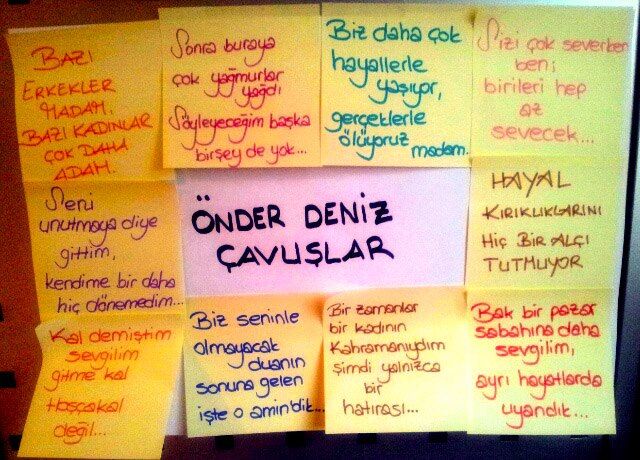 BAZI
ERKEKLER
MADAM,
BAZI KADINLAR
ÇOK DAHA
ADAM.
Sonra buraya
çok yağmurlar
yağdı
Söyleyeceğim başka
birşey de yok...
Biz daha çok
hayallerle
yaşıyor,
gerçeklerle
ölüyoruz
madam.
Sizi çok severken
ben;
birileri hep
az
sevecek...
Seni
unutmaya diye
gittim,
kendime bir daha
hiç dönemedim...
ÖNDER DENİZ
ÇAVUŞLAR
HAYAL
KIRIKLIKLARINI
HİÇ BİR ALÇI
TUTMUYOR
Kal demiştim
sevgilim
gitme kal
Hoşçakal
değil...
Biz seninle
olmayacak
duanın
sonuna gelen
işte o amin'dik...
Bir zamanlar
bir kadının
Kahramanıydım
şimdi yalnızca
bir
hatırası...
Bak bir pazar
sabahına daha
sevgilim,
ayrı hayatlarda
uyandık...